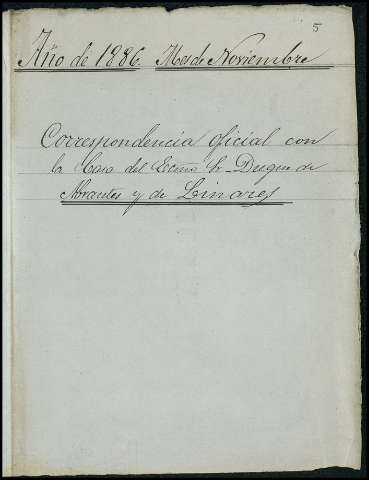 5
Año de 1886. Mes de Noviembre
Correspondencia oficial con
la Casa del Excmo Sr Duque de
Abrantes y de Linares